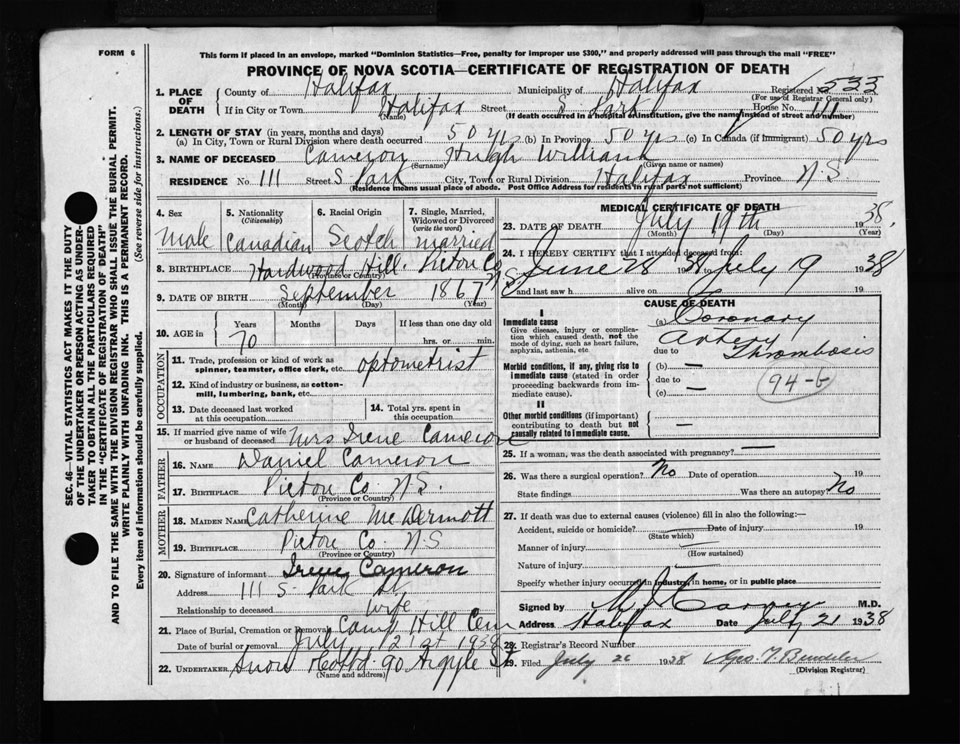 FORM 6
This form if placed in an envelope, marked "Dominion Statistics—Free, penalty for improper use $300," and properly addressed will pass through the mail "FREE"
PROVINCE OF NOVA SCOTIA—CERTIFICATE OF REGISTRATION OF DEATH
SEC. 46—VITAL STATISTICS ACT MAKES IT THE DUTY
OF THE UNDERTAKER OR PERSON ACTING AS UNDER-
TAKER TO OBTAIN ALL THE PARTICULARS REQUIRED
IN THE "CERTIFICATE OF REGISTRATION OF DEATH"
AND TO FILE THE SAME WITH THE DIVISION REGISTRAR WHO SHALL ISSUE THE BURIAL PERMIT.
WRITE PLAINLY WITH UNFADING INK. THIS IS A PERMANENT RECORD.
Every item of information should be carefully supplied. (See reverse side for instructions.)
1. PLACE OF DEATH County of Halifax Municipality of Halifax Registered No. 533
(For use of Registrar General only)
If in City or Town Halifax Street S. Park House No. 111
(Name) (If death occurred in a hospital or institution, give the name instead of street and number)
2. LENGTH OF STAY (in years, months and days)
(a) In City, Town or Rural Division where death occurred 50 yrs (b) In Province 50 yrs (c) In Canada (if immigrant) 50 yrs
3. NAME OF DECEASED Cameron Hugh William
(Surname) (Given name or names)
RESIDENCE No. 111 Street S Park City, Town or Rural Division Halifax Province N.S
(Residence means usual place of abode. Post Office Address for residents in rural parts not sufficient)
4. Sex Male
5. Nationality (Citizenship) Canadian
6. Racial Origin Scotch
7. Single, Married, Widowed or Divorced (write the word) married
8. BIRTHPLACE Hardwood Hill Pictou Co N S
(Province or Country)
9. DATE OF BIRTH September 1867
(Month) (Day) (Year)
10. AGE in Years Months Days If less than one day old
70 hrs. or min.
OCCUPATION
11. Trade, profession or kind of work as spinner, teamster, office clerk, etc. optometrist
12. Kind of industry or business, as cotton-mill, lumbering, bank, etc.
13. Date deceased last worked at this occupation
14. Total yrs. spent in this occupation
15. If married give name of wife or husband of deceased Mrs Irene Cameron
FATHER
16. NAME Daniel Cameron
17. BIRTHPLACE Pictou Co. N.S.
(Province or Country)
MOTHER
18. MAIDEN NAME Catherine McDermott
19. BIRTHPLACE Pictou Co. N.S
(Province or Country)
20. Signature of informant Irene Cameron
Address 111 S. Park St.
Relationship to deceased wife
21. Place of Burial, Cremation or Removal Camp Hill Cem
Date of burial or removal July 21st 1938
22. UNDERTAKER Snow & Co Ltd. 90 Argyle St
(Name and address)
MEDICAL CERTIFICATE OF DEATH
23. DATE OF DEATH July 19th 1938
(Month) (Day) (Year)
24. I HEREBY CERTIFY that I attended deceased from:
June 28 1938 to July 19 1938
and last saw h alive on 19
CAUSE OF DEATH
I
Immediate cause
Give disease, injury or complication which caused death, not the mode of dying, such as heart failure, asphyxia, asthenia, etc.
(a) Coronary Artery Thrombosis
due to
Morbid conditions, if any, giving rise to immediate cause (stated in order proceeding backwards from immediate cause).
(b) —
due to —
(c)
94-b
II
Other morbid conditions (if important) contributing to death but not causally related to immediate cause.
—
25. If a woman, was the death associated with pregnancy? —
26. Was there a surgical operation? No Date of operation 19
State findings Was there an autopsy? No
27. If death was due to external causes (violence) fill in also the following:—
Accident, suicide or homicide? Date of injury 19
(State which)
Manner of injury —
(How sustained)
Nature of injury —
Specify whether injury occurred in industry, in home, or in public place
Signed by M.D.
Address Halifax Date July 21 1938
28. Registrar's Record Number
29. Filed July 1938
(Division Registrar)